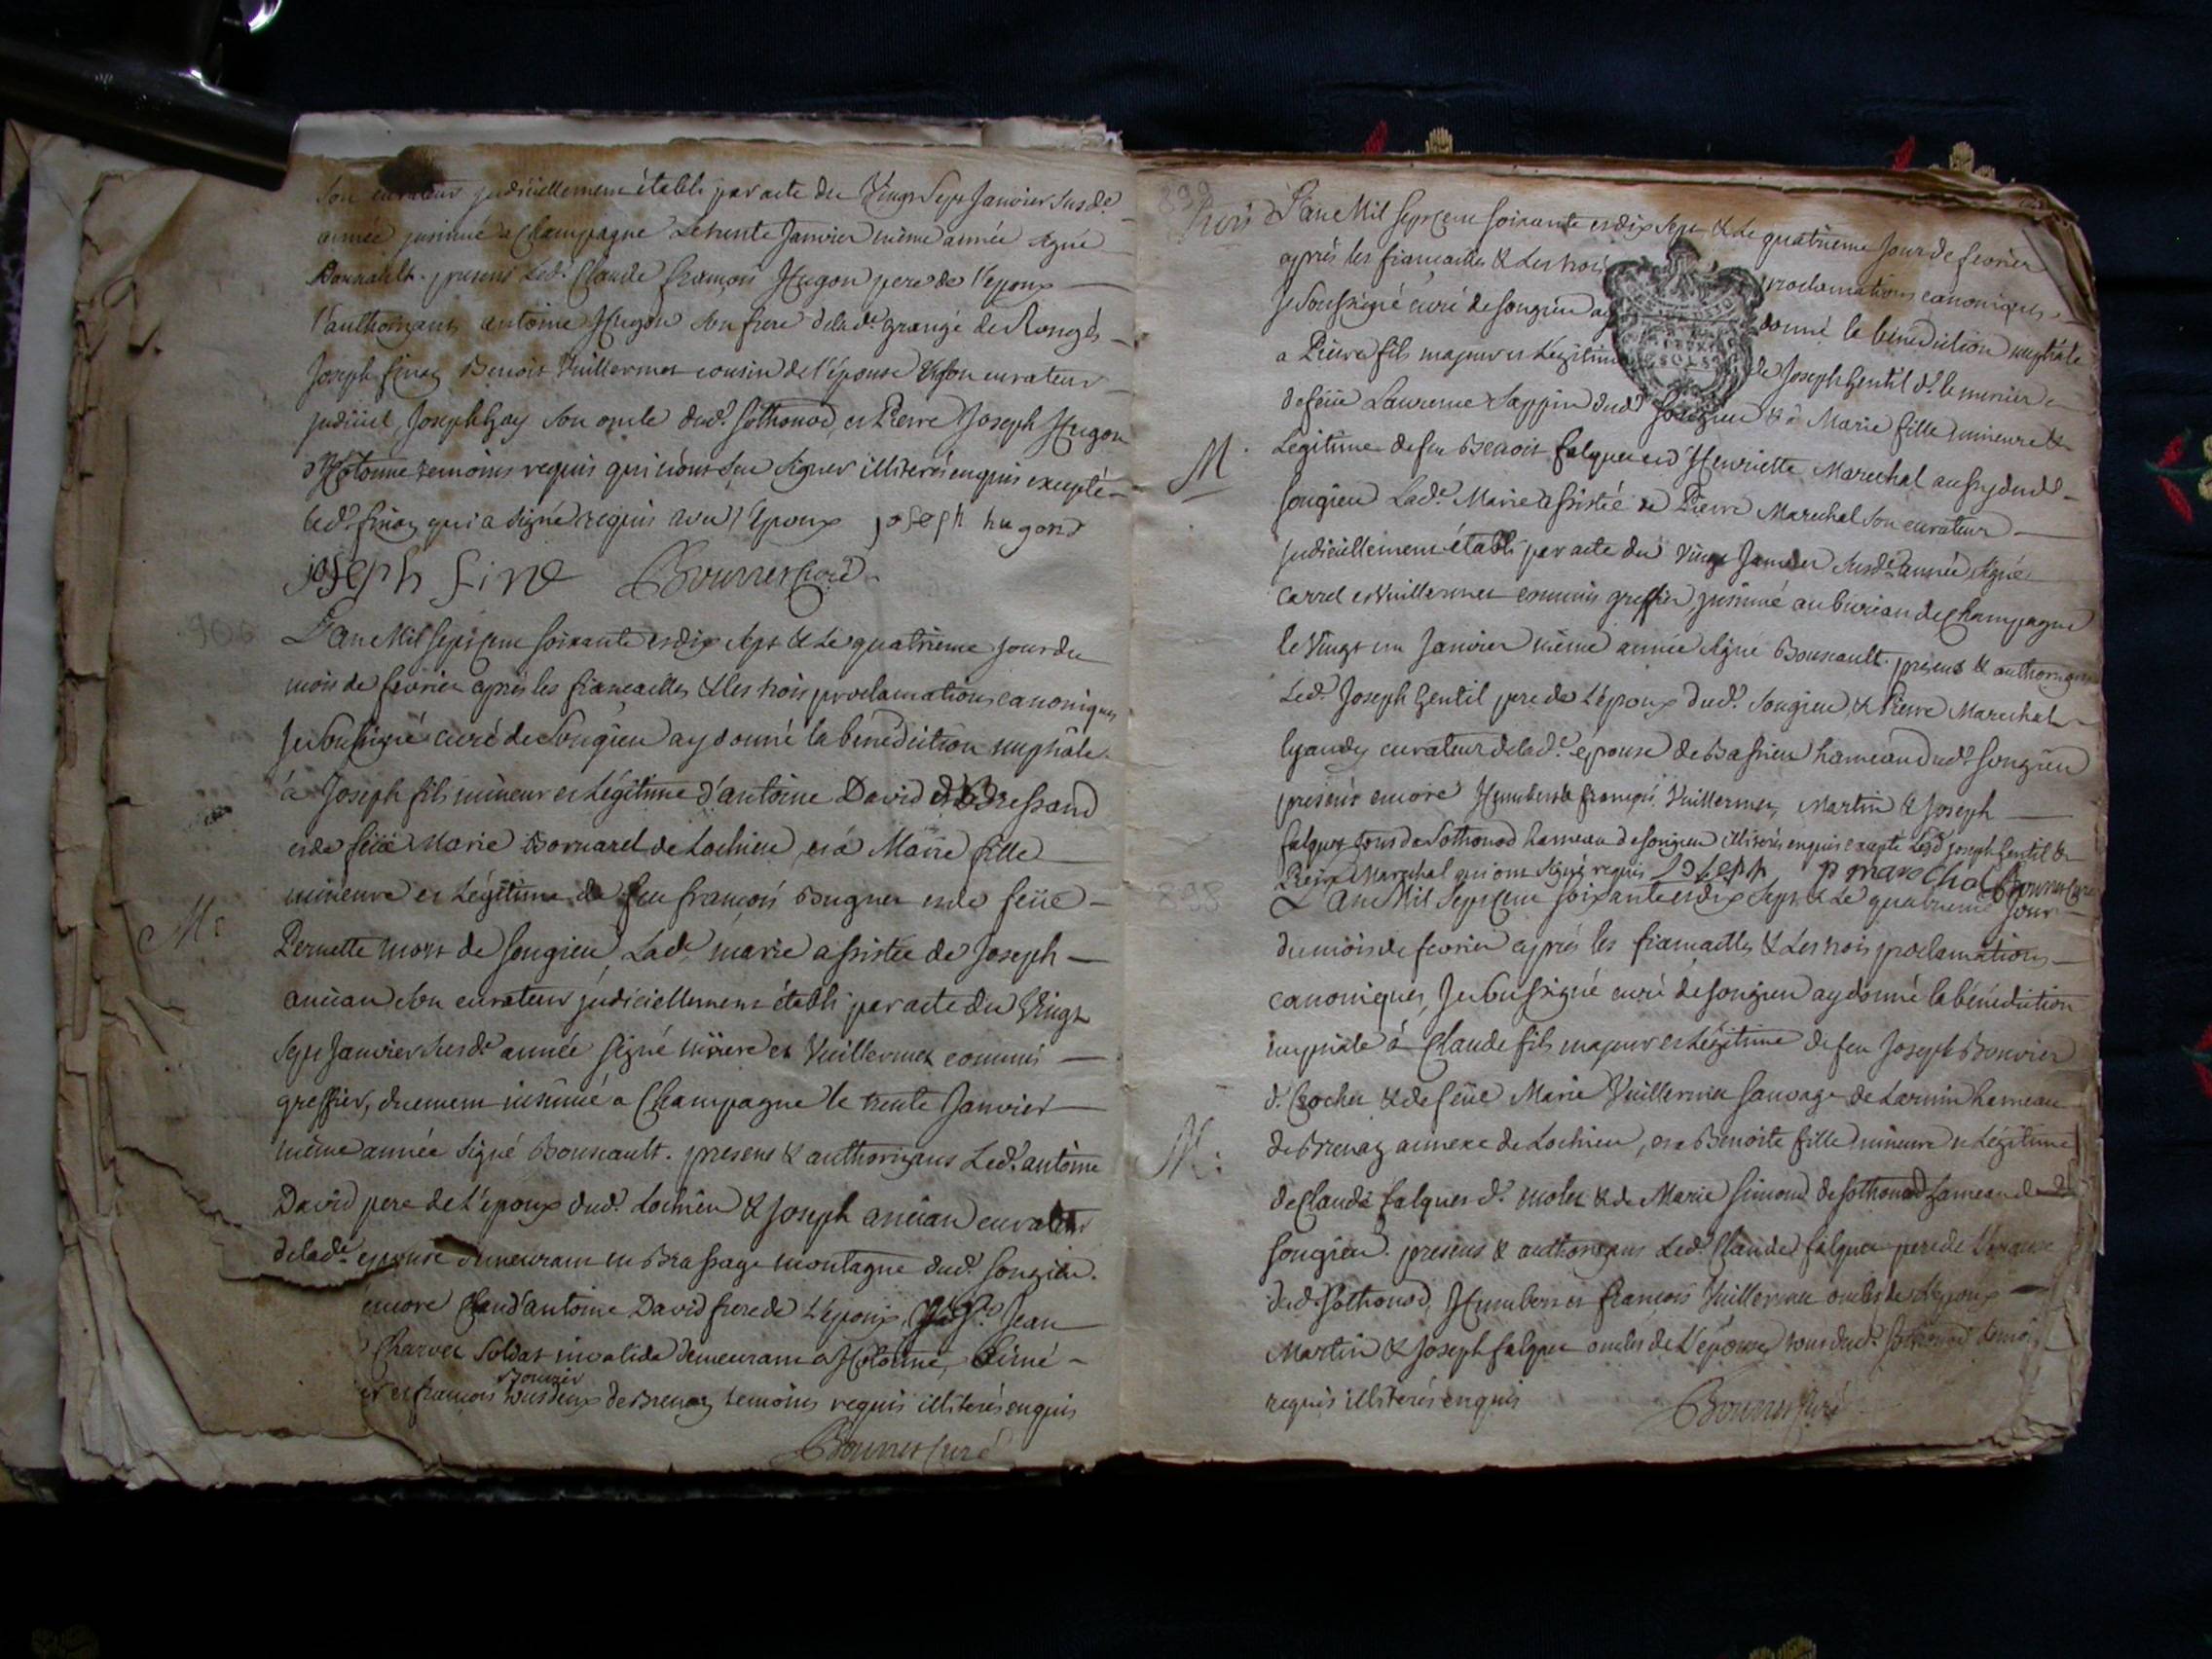 son curateur judiciellement établi par acte du Vingt Sept Janvier susde
année insinué a Champagne Le trente Janvier même année signé
Bonnault. presens Led. Claude françois Hugon pere de l'epoux
l'authorisant antoine Hugon son frere delade. grange de Rongés
Joseph finaz Benoit Vuillermet cousin de l'épouse & son curateur
judiciel, Joseph Gay son oncle dud. Sothonod, et Pierre Joseph Hugon
d'Hotonne temoins requis qui n'ont sçu signer illiterés enquis excepté
led. finaz qui a signé requis avec l'Epoux joseph hugond
joseph fine Bonnet Curé
L'an Mil sept cent soixante et dix sept & Le quatrieme jour du
mois de fevrier après les fiancailles & les trois proclamations canoniques
Je soussigné curé de Songieu ay donné la bénédiction nuptiale
á Joseph fils mineur et Légitime d'antoine David
et de feüe Marie Bornarel de Lochieu, et á Marie fille
mineure et Légitime de feu françois Bugnet et de feüe
Pernette mort de Songieu, Lade. marie assistée de Joseph
ancian son curateur judiciellement établi par acte du Vingt
Sept Janvier susde. année signé et Vuillermet commis
greffier, duement insinué a Champagne le trente Janvier
même année signé Bonnault. presens & authorisans Led. antoine
David pere de L'époux dud. Lochieu & Joseph ancian curateur
delade. epouse demeurant en Brassage montagne dud. Songieu.
encore Claud'antoine David frere de L'époux, Jean
Charvet Soldat invalide demeurant a Hotonne, Aimé
Bouvier
et francois tous deux de Brenaz temoins requis illiterés enquis
Bonnet Curé
899
L'an Mil sept cent soixante et dix sept & Le quatrieme Jour de fevrier
après les fiancailles & Les trois proclamations canoniques
Je Soussigné curé de Songieu ay donné la bénédiction nuptiale
a Pierre fils majeur et Légitime de Joseph Gentil d. le munier
de feüe Laurence Sappin dud. Songieu & á Marie fille mineure &
M.
Légitime de feu Benoit falquet et d'Henriette Marechal aussy dud.
Songieu Lade. Marie assistée de Pierre Marechal son curateur
judiciellement établi par acte du Vingt Janvier susde. année, signé
Carrel et Vuillermet commis greffier, insinué au bureau de Champagne
le Vingt un Janvier même année signé Bonnault. presens & authorisans
Led. Joseph Gentil pere de L'époux dud. Songieu, & Pierre Marechal
curateur delade. épouse de Bassieu hameau dud. Songieu
presens encore Humbert & françois Vuillermet, Martin & Joseph
falquet tous de Sothonod hameau de Songieu illiterés enquis excepté Lesd. joseph Gentil &
Pierre Marechal qui ont signé requis joseph p marechal Bonnet Curé
898
L'an Mil Sept Cent soixante et dix Sept & Le quatrieme Jour
du mois de fevrier après les fiancailles & Les trois proclamations
canoniques, Je soussigné curé de songieu ay donné la bénédiction
nuptiale á Claude fils majeur et Légitime de feu Joseph Bouvier
d. Crochet & de feüe Marie Vuillermet Sauvage de Larmin hameau
M:
de Brenaz annexe de Lochieu, et a Benoite fille mineure et Légitime
de Claude falquet d. molet & de Marie Simond de Sothonod hameau de
Songieu. presens & authorisans Led. Claude falquet pere de L'épouse
dud. Sothonod, Humbert et françois Vuillermet oncles de L'epoux
Martin & Joseph falquet oncles de L'épouse tous dud. Sothonod temoins
requis illiterés enquis
Bonnet Curé